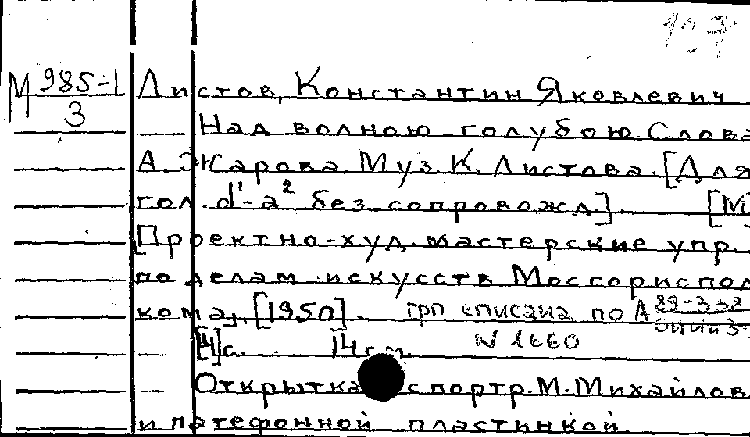 М 985-1/3
Листов, Константин Яковлевич
Над волною голубою. Слова
А. Жарова Муз К. Листова. [Для
гол. d¹-a² без сопровожд]. [М]
[Проектно-худ. мастерские упр.
по делам искусств Мосгорисполкома], [1950].
[4]с. 14см.
N 1660
Открытка с портр. М. Михайлов
и патефонной пластинкой.